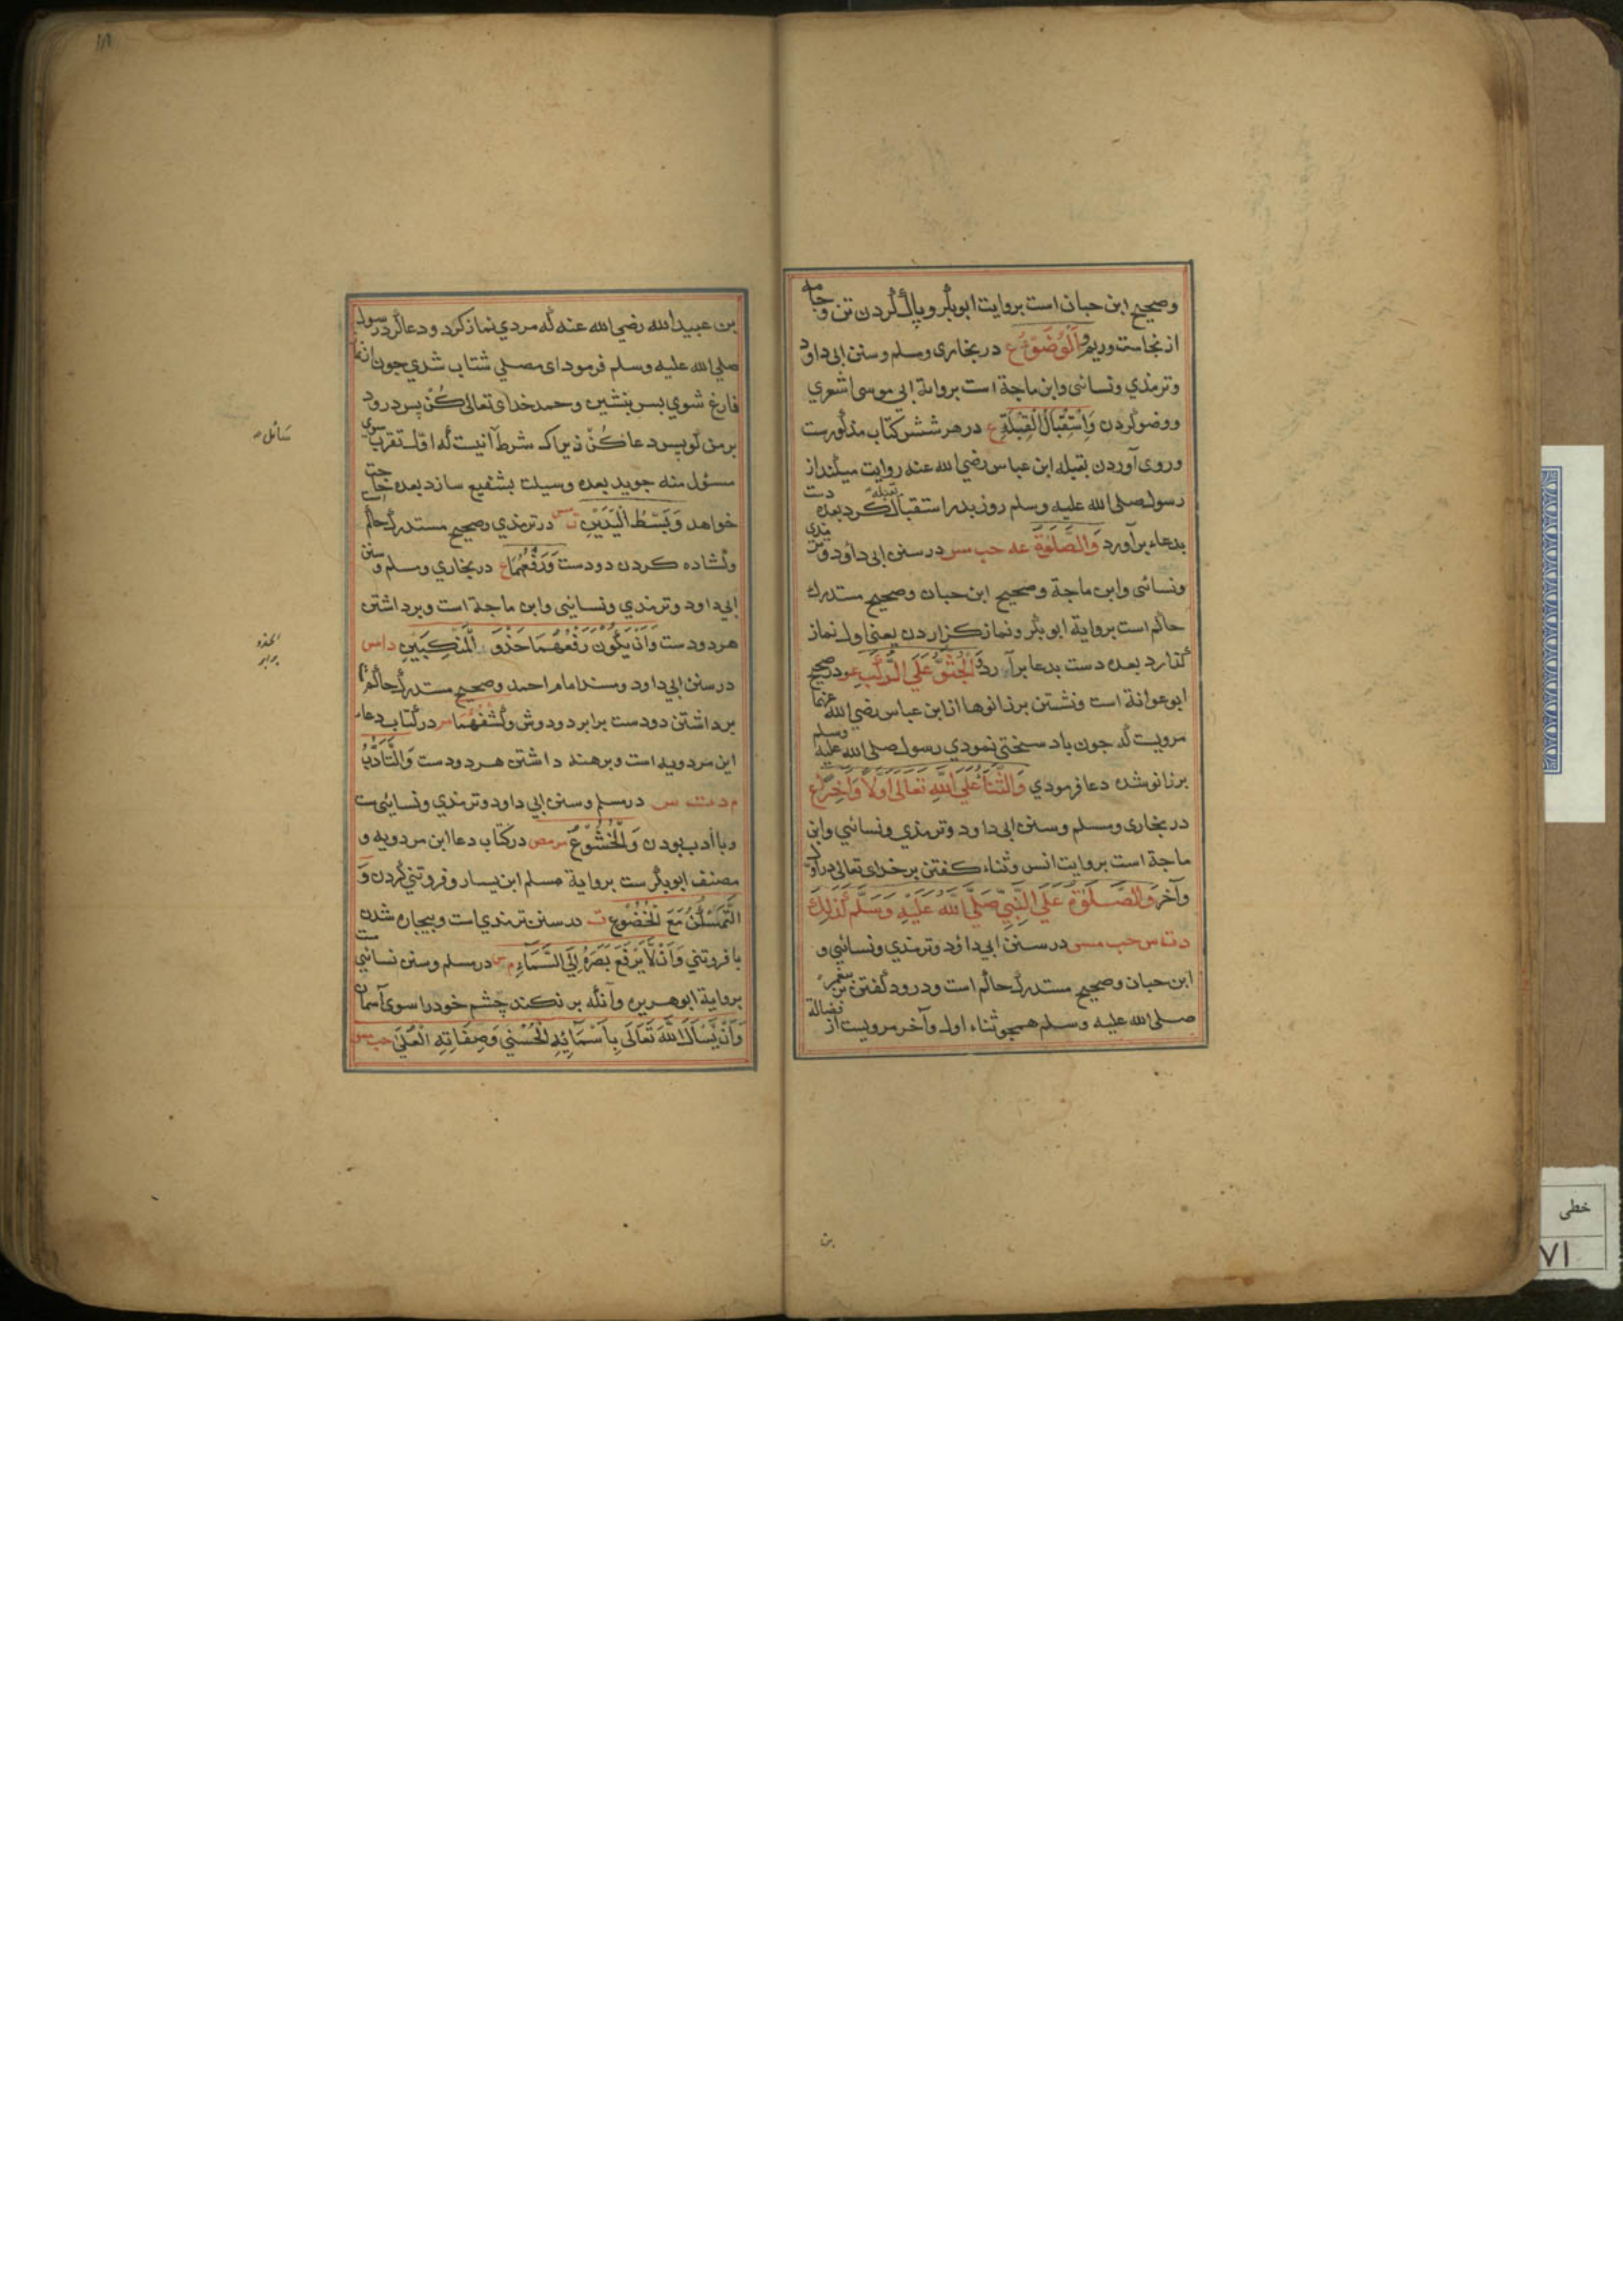 وصحیح ابن حبان است بروایت ابوبکر و پاک کردن تن و جامه
از نجاست و ریم وَالْوُضُوْءُ ع در بخاری ومسلم وسنن ابی داود
وترمذي ونسائی وابن ماجة است بروایة ابي موسی اشعري
ووضو کردن وَاسْتِقْبَالُ الْقِبْلَةِ ع در هر شش کتاب مذکورست
وروی آوردن بقبله ابن عباس رضي الله عنه روایت میکند از
رسول صلی الله علیه وسلم روز بدر استقبال قبله کرد بعده دست
بدعاء برآورد وَالصَّلٰوةُ عه حب مس در سنن ابی داود وترمذی
ونسائی وابن ماجة وصحیح ابن حبان وصحیح مستدرك
حاکم است بروایة ابوبکر ونماز کزاردن یعنی اول نماز
گذارد بعده دست بدعا برآرد وَالْجُثُوُّ عَلَي الرُّكَبِ عو در صحیح
ابوعوانة است ونشستن بر زانوها از ابن عباس رضي الله عنهما
مرویست که جون باد سختی نمودي رسول صلی الله علیه وسلم
بر زانو شده دعا فرمودي وَالثَّنَاءُ عَلَي اللّٰهِ تَعَالٰی اَوَّلًا وَاٰخِرًا ع
در بخاری ومسلم وسنن ابی داود وترمذي ونسائي وابن
ماجة است بروایت انس وثناء کفتن بر خدای تعالی در اول
وآخر وَالصَّلٰوةُ عَلَي النَّبِيِّ صَلَّي اللّٰهُ عَلَيْهِ وَسَلَّمَ كَذٰلِكَ
د ت س حب مس در سنن ابي داود وترمذي ونسائي و
ابن حبان وصحیح مستدرك حاکم است ودرود گفتن بر پیغمبر
صلی الله علیه وسلم همجو ثناء اول وآخر مرویست از فضالة
بن
بن عبید الله رضي الله عنه که مردي نماز کرد ودعا کرد رسول
صلي الله علیه وسلم فرمود ای مصلي شتاب شدي جون از نماز
فارغ شوي بس بنشین وحمد خدای تعالی کُن بس درود
بر من گو پس دعا کُن زیرا که شرط آنیست که اول تقرب سوی
مسئول منه جوید بعده وسیلت بشفیع سازد بعده حاجت
خواهد وَبَسْطُ الْيَدَيْنِ ت مس در ترمذي وصحیح مستدرك حاکم است
وکشاده کردن دو دست وَرَفْعُهُمَا ع در بخاري ومسلم وسنن
ابي داود وترمذي ونسائي وابن ماجة است وبرداشتن
هر دو دست وَاَنْ يَكُوْنَ رَفْعُهُمَا حَذْوَ الْمَنْكِبَيْنِ د ا مس
در سنن ابي داود ومسند امام احمد وصحیح مستدرك حاکم است
برداشتن دو دست برابر دو دوش وَكَشْفُهُمَا مر در کتاب دعاء
ابن مردویه است وبرهنه داشتن هر دو دست وَالتَّاَدُّبُ
م د ت س در مسلم وسنن ابي داود وترمذي ونسائي ست
وبا ادب بودن وَالْخُشُوْعُ مر مص در کتاب دعا ابن مردویه و
مصنف ابوبکر ست بروایة مسلم ابن یسار وفروتني کردن وَ
التَّمَسْكُنُ مَعَ الْخُضُوْعِ ت در سنن ترمذي است وبیجاره شدن
با فروتني وَاَنْ لَّا يَرْفَعَ بَصَرَهٗ اِلَي السَّمَآءِ م س در مسلم وسنن نسائي ست
بروایة ابوهریره وآنکه بر نکند چشم خود را سوی آسمان
وَاَنْ يَّسْأَلَ اللّٰهَ تَعَالٰی بِاَسْمَآئِهِ الْحُسْنٰي وَصِفَاتِهِ الْعُلٰي حب مس
سائل ص
الحذو
برابر
خطی
۷۱